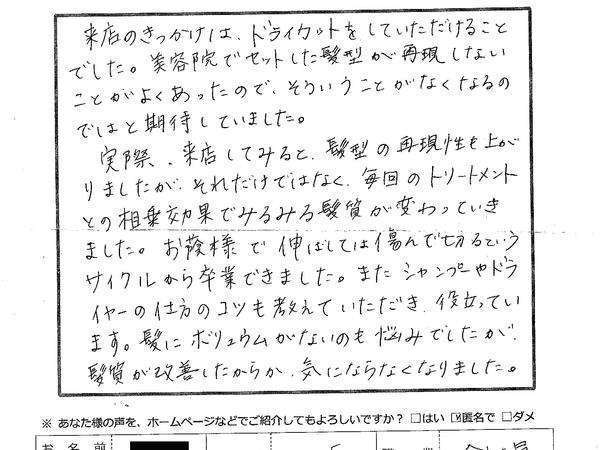 来店のきっかけは、ドライカットをしていただけること
でした。美容院でセットした髪型が再現しない
ことがよくあったので、そういうことがなくなるの
ではと期待していました。
実際、来店してみると、髪型の再現性も上が
りましたが、それだけではなく、毎回のトリートメント
との相乗効果でみるみる髪質が変わっていき
ました。お蔭様で伸ばしては傷んで切るという
サイクルから卒業できました。またシャンプーやドラ
イヤーの仕方のコツも考えていただき、役立ってい
ます。髪にボリュウムがないのも悩みでしたが、
髪質が改善したからか、気にならなくなりました。
※ あなた様の声を、ホームページなどでご紹介してもよろしいですか？ □はい ☑匿名で □ダメ
お 名 前